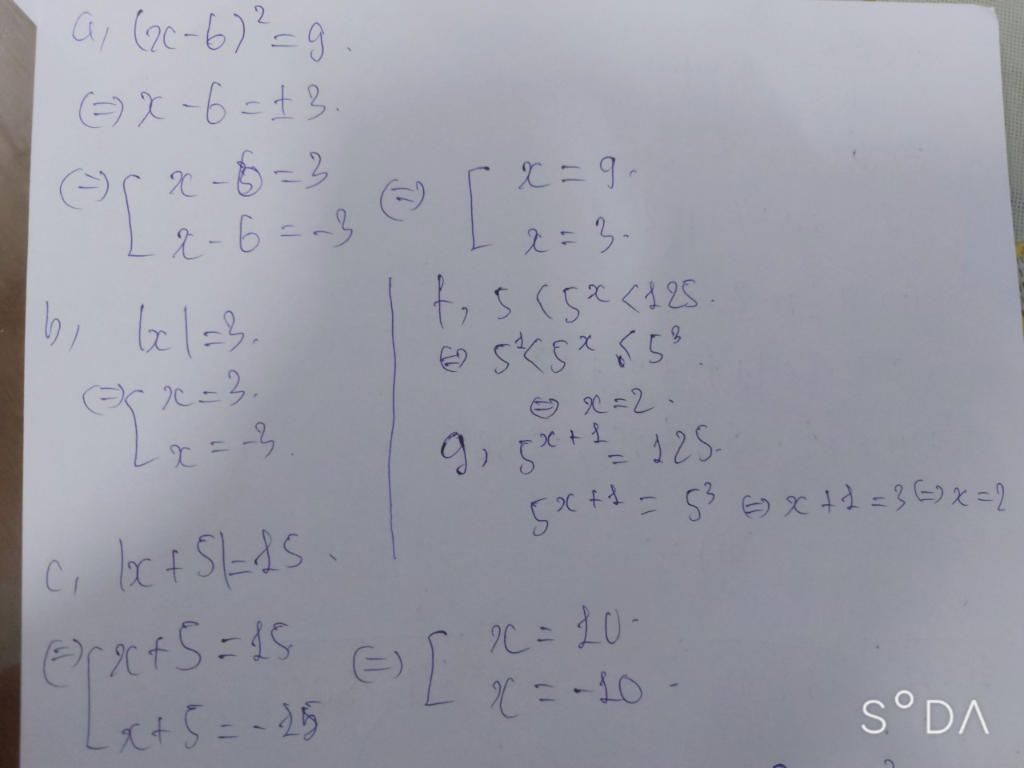 a, (x-6)² = 9.
(=) x - 6 = ±3.
(=) [ x - 6 = 3
x - 6 = -3
(=) [ x = 9.
x = 3.
b, |x| = 3.
(=) [ x = 3.
x = -3.
c, |x+5| = 15.
(=) [ x+5 = 15
x+5 = -15
(=) [ x = 10.
x = -10.
f, 5 < 5ˣ < 125.
(=) 5¹ < 5ˣ < 5³.
(=) x = 2.
g, 5ˣ⁺¹ = 125.
5ˣ⁺¹ = 5³ (=) x+1 = 3 (=) x = 2
S°DA